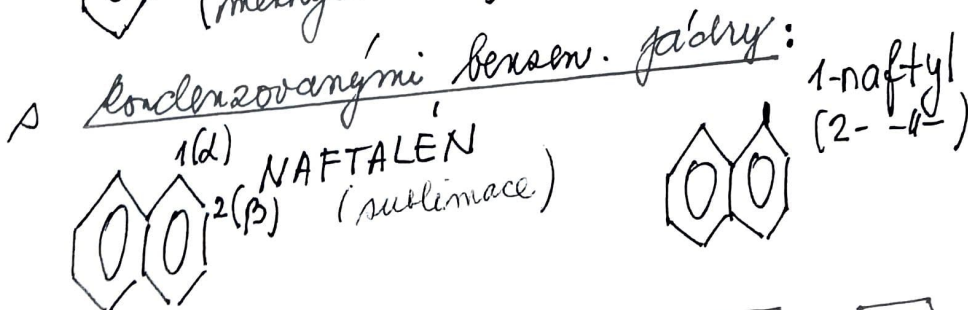 s kondenzovanými benzen. jádry:
1(α) NAFTALÉN
2(β) (sublimace)
1-naftyl
(2- -"-)